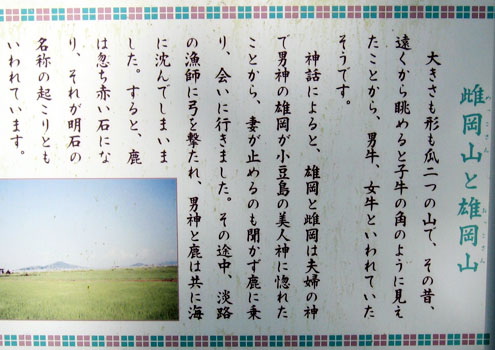 雌岡山と雄岡山
めっこさん
おっこさん
大きさも形も瓜二つの山で、その昔、
遠くから眺めると子牛の角のように見え
たことから、男牛、女牛といわれていた
そうです。
神話によると、雄岡と雌岡は夫婦の神
で男神の雄岡が小豆島の美人神に惚れた
ことから、妻が止めるのも聞かず鹿に乗
り、会いに行きました。その途中、淡路
の漁師に弓を撃たれ、男神と鹿は共に海
に沈んでしまいま
した。すると、鹿
は忽ち赤い石にな
り、それが明石の
名称の起こりとも
いわれています。